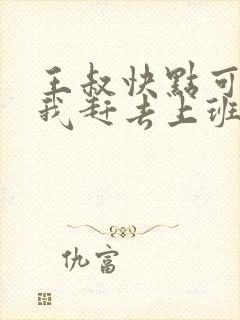 王叔快點可
我赶去上班
仇富